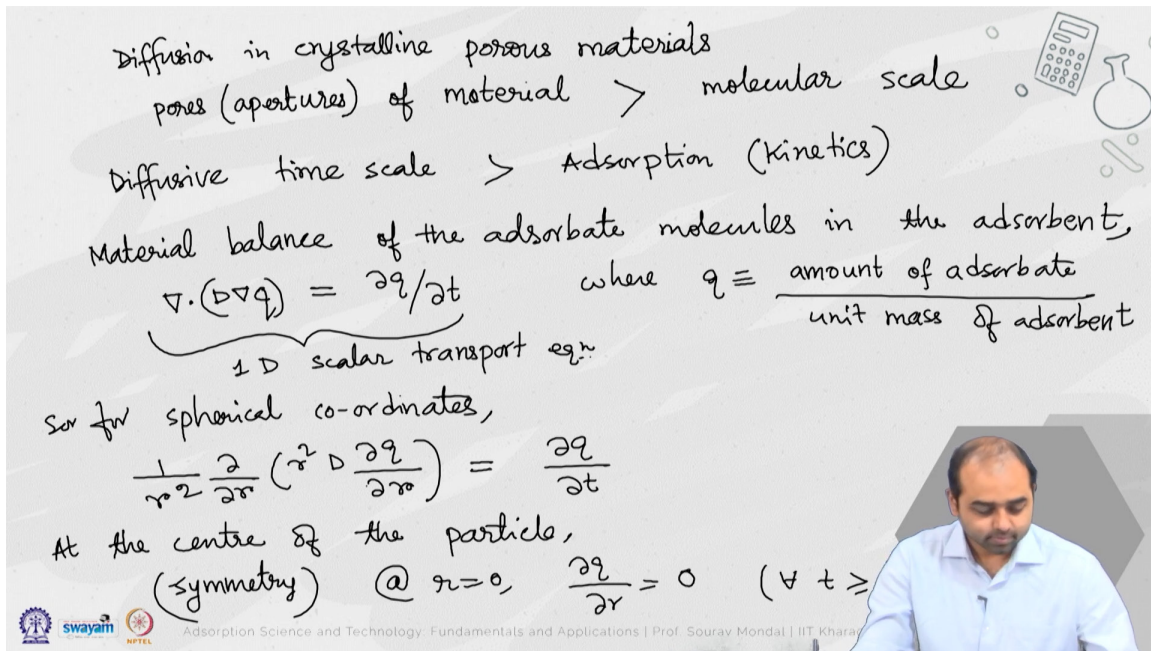 Diffusion in crystalline porous materials
pores (apertures) of material > molecular scale
Diffusive time scale > Adsorption (kinetics)
Material balance of the adsorbate molecules in the adsorbent,
∇·(D∇q) = ∂q/∂t where q ≡ amount of adsorbate / unit mass of adsorbent
1D scalar transport eqn
for spherical co-ordinates,
1/r² ∂/∂r (r² D ∂q/∂r) = ∂q/∂t
At the centre of the particle,
(symmetry) @ r=0, ∂q/∂r = 0 (∀ t ≥
swayam
NPTEL
Adsorption Science and Technology: Fundamentals and Applications | Prof. Sourav Mondal | IIT